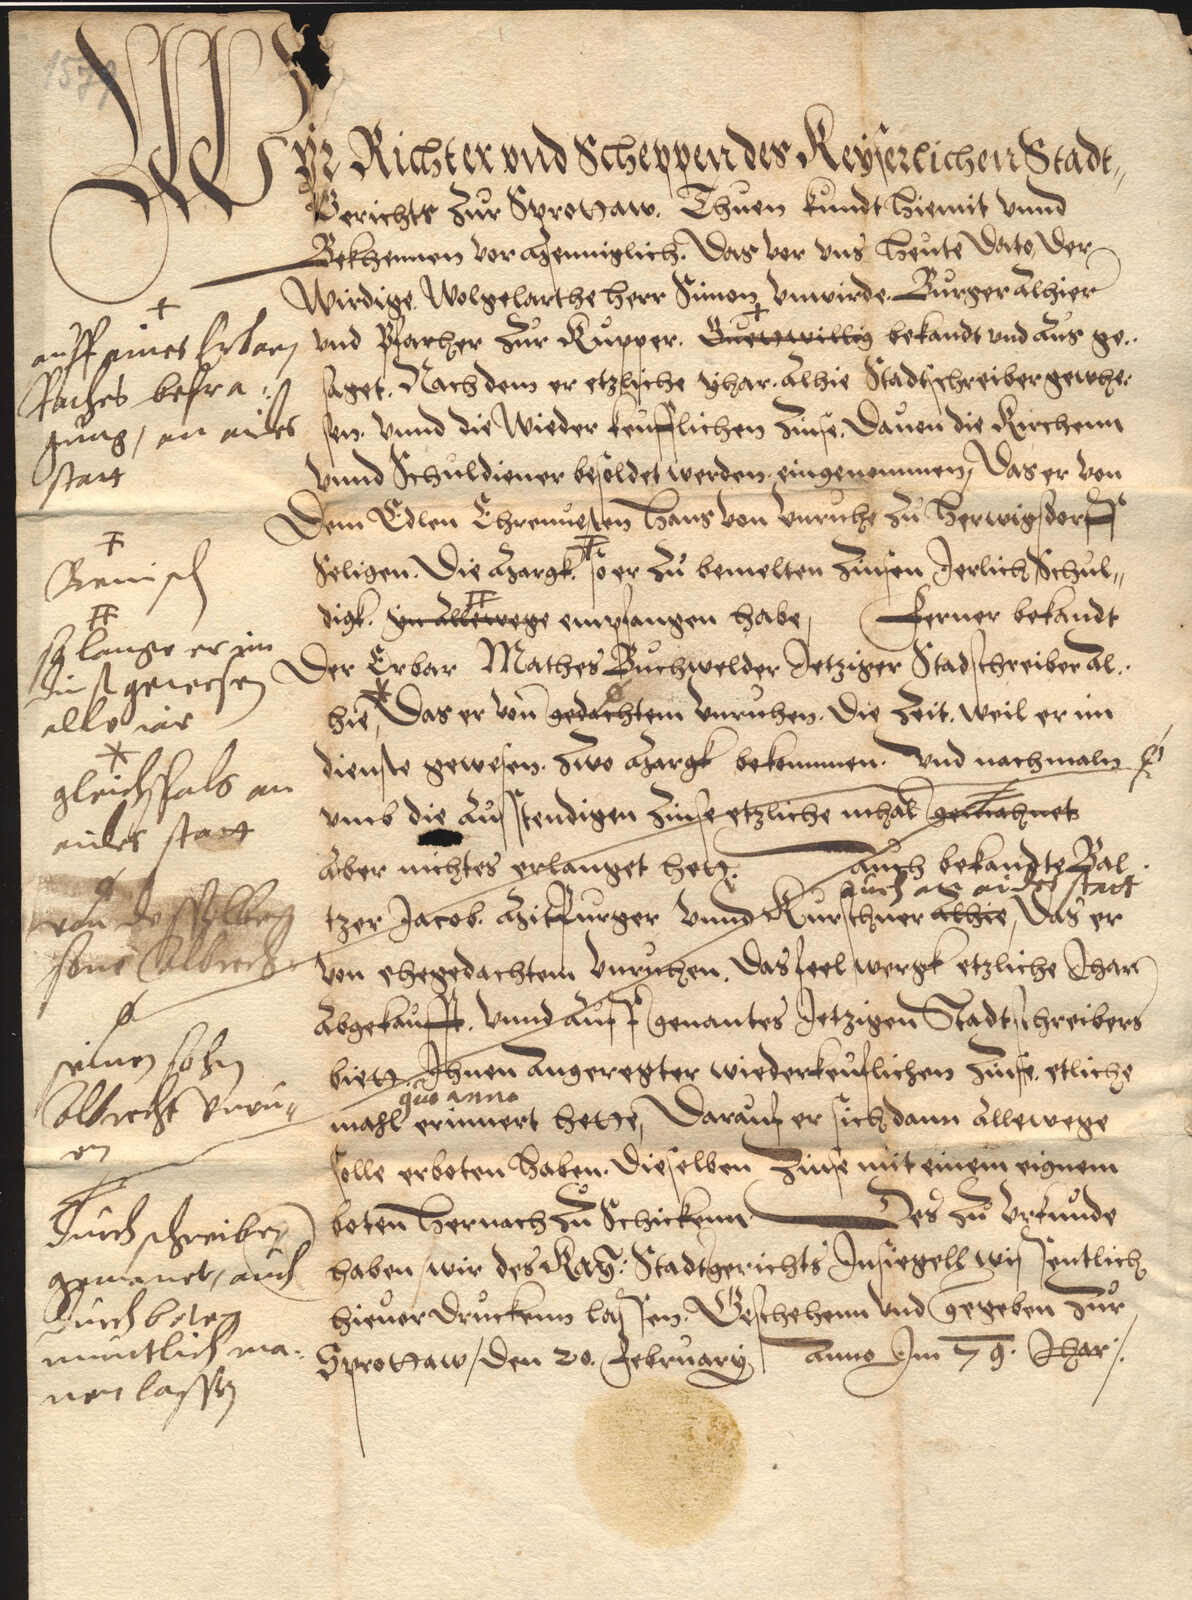 1579
Wyr Richter vnd Scheppen des Keyserlichen Stadt„
Gerichts zur Sprottaw. Thuen kundt hiemit vnnd
Bekhennen vor Menniglich. Das vor vns heute Dato, Der
Wirdige. Wolgelarthe Herr Simon Vnwirde. Burger Alhier
vnd Pfarher zur Kupper. Guettwillig bekandt vnd Aus ge„
saget. Nachdem er etzliche Jhar. Alhie Stadtschreiber gewhe„
sen. vnnd die Wieder keufflichen Zinse. Dauon die Kirchenn
vnnd Schuldiener besoldet werden eingenommen, Das er von
Dem Edlen Ehrenuesten Hans von Vnruhe zu Herwigsdorff
Seligen. Die Margk. so er zu bemelten Zinsen Jerlich Schul„
digk. Jn Allewege empfangen habe, Ferner bekandt
Der Erbar Mathes Buchwelder Jetziger Stadschreiber Al„
hie, Das er von gedachtem Vnruhen. Die Zeit. weil er im
dienste gewesen. Zwo Margk bekommen. Vnd nachmaln
vmb die Ausstendigen Zinse etzliche mhal gemahnet
Aber nichtes erlanget hett. Auch bekandte Bal„
auch an eides statt
tzer Jacob. Mitburger vnnd Kurschner Alhie, Das er
von ehegedachtem Vnruhen. Das seel wergk etzliche Jhar
Abgekaufft. vnnd Auff genantes Jetzigen Stadtschreibers
bitt Jhnen Angeregter wiederkeuflichen Zinse. etliche
quo anno
mahl erinnert hette, Darauf er sich dann Allewege
solle erboten haben. Dieselben Zinse mit einem eignem
boten hernach zu Schickenn Des zu Vrkunde
haben wir des Kay: Stadtgerichts Jnsiegell wissentlich
hieuor Druckenn lassen. Geschehenn vnd gegeben zur
Sprottaw, Den 20. February Anno Jm 79. Jhar.
auff eines Erbarn
Raches befra„
gung, an eides
statt
Reinisch
so lange er im
dinst gewesen
alle iar
gleichfals an
eides statt
von desselben
sone Albrech
seinen sohn
Albrecht Vnru„
en
durch schreiben
gemanet, auch
durch boten
muntlich ma„
nen lassen